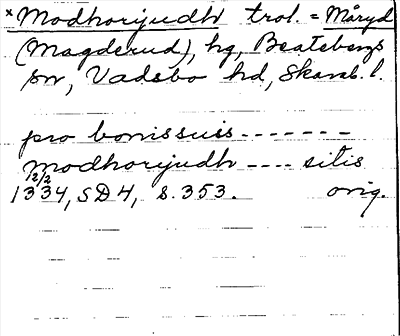 × Modhorijudh trol. = Måryd
(Magderud), hg, Beatebergs
sn, Vadsbo hd, Skarab. l.
pro bonis suis -------
modhorijudh ---- sitis
12/2
1334, SD 4, s. 353. orig.